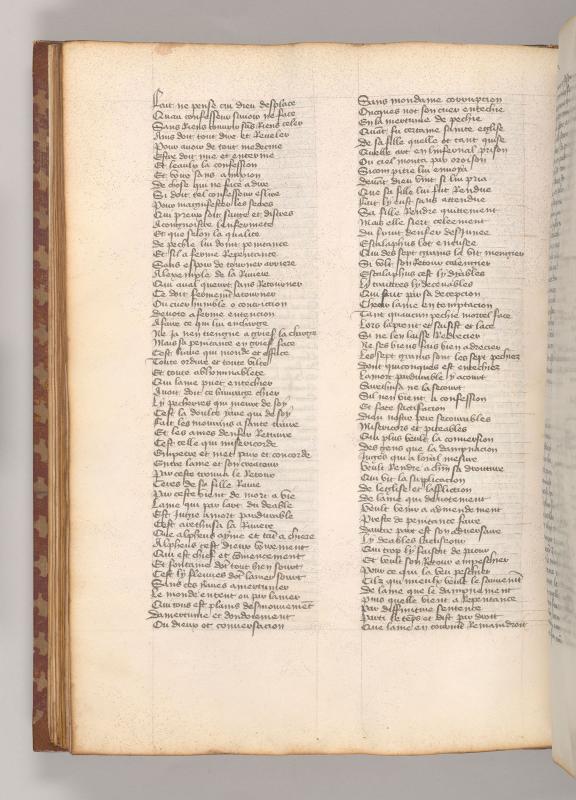 Lait ne pense qui dieu desplace
Quau confesseur savoir ne face
Sans riens couvrir sans riens celer
Ains doit tout dire et reveler
Pour avoir de tout medecine
Estre doit vraie et enterine
Et leaulx la confession
Et tous sans
De chose qui ne face a dire
Si doit tel confesseur eslire
Pour magnifester les fedes
Qui preux soit saiges et discres
A congnoistre lenfermete
Et que selon la qualite
De pechie lui doint penitance
Et sil a ferme repentance
Sans espoir de tourner arriere
A lexemple de la riviere
Qui aval queurt sans retourner
Ce doit fermement atourner
Ou cuer humble o contriction
Devote a ferme entencion
A faire ce qui len charge
Ne ja nen tiengne a grief la charge
Mais sa penitance en grief face
Cest leaue qui monde et efface
Toute ordure et toute vilte
Et toute abhominablete
Qui lame puet entechier
Avoir doit ce buvrage chier
Ly pecheurs qui meurt de soy
Cest la doulce eaue qui de soy
Fait les mourans a sante traire
Et les ames denfer retraire
Cest celle qui misericorde
Empetre et met paix et concorde
Entre lame et son createur
Par ceste trouva le retour
Ceres de sa fille ravie
Par ceste vient de mort a vie
Lame qui par lart du deable
Est jugee a mort pardurable
Cest arethusa la riviere
Que alpheus ayme et tant a chiere
Alpheus cest dieux vrayement
Qui est chief et commencement
Et fontaine dot tout bien sourt
Cest ly fleuves dot lamer sourt
Sans ces eaues amertumer
Le monde entent on par lamer
Qui tous est plains desmouvement
Damertume et dondoiement
Ou dieux ot conversacion
Sans mondaine corrupcion
Oncques not son cuer entechie
En la mertume de pechie
Quant fu certaine sainte eglise
De sa fille quelle ot tant quise
Quelle ert en linfernal prison
Ou ciel monta par oroison
Si com pitie lui envoya
Devant dieu vint si lui pria
Que sa fille lui fut rendue
Lait ly eust sans attendue
Sa fille rendre quittement
Mais elle fiert celeement
Du fruit denfer desjunee
Escalaphus lot encusee
Qui des sept grains la vit mengier
Si volt son retour calengier
Escalaphus cest ly dyables
Ly traittres ly decevables
Qui fait par sa decepcion
Cheoir lame en temptacion
Tant quaucun pechie mortel face
Lors la prent et saisist et lace
Si ne len laisse redrecier
Ne ses biens fais bien adrecier
Les sept grains sont les sept pechiez
Dont quiconques est entechiez
La mort pardurable y acourt
Arethusa ne la secourt
Sil nen vient a confession
Et face satisfacion
Dieu nostre pere secourables
Misericors et piteables
Qui plus veult la conversion
Des gens que la dampnacion
Juges qui a loial mesure
Veult rendre a chascun sa droiture
Qui vit la suplicacion
De leglise et lafliction
De lame qui devotement
Veult venir a amendement
Preste de penitance faire
Dautre part est son adversaire
Ly deables lacuseour
Qui trop ly faisoit de paour
Et veult son retour empeschier
Pour ce qui la veu peschier
Cilz qui mieulx veult le sauvement
De lame que le dampnement
Puis quelle vient a repentance
Par diffinitive sentence
Parti le temps et dist par droit
Que lame en tourment remaindroit